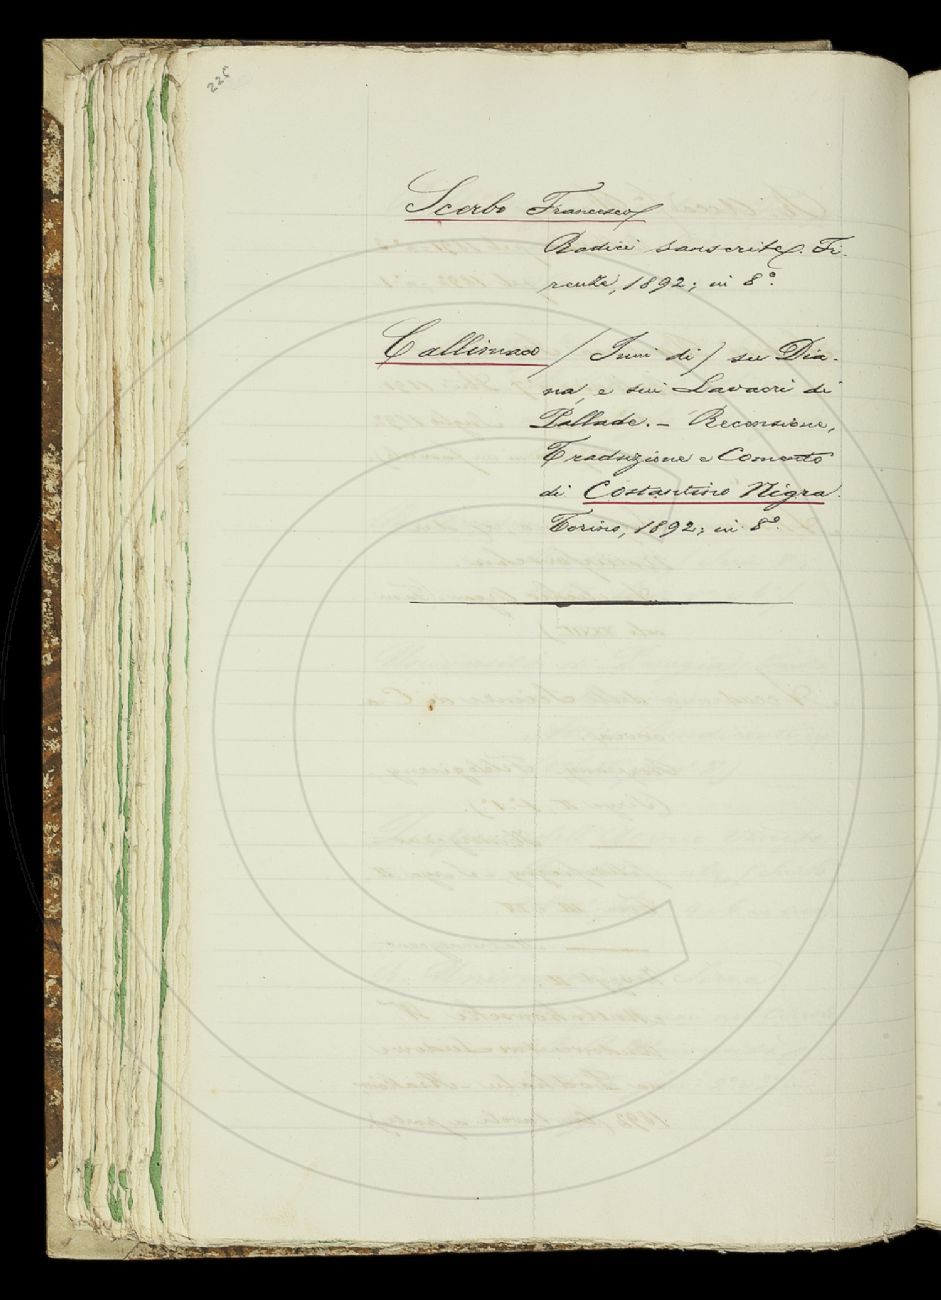 225
Scerbo Francesco
Radici sanscrite. Fi-
renze, 1892; in 8°.
Callimaco (Inni di) su Dia-
na, e sui Lavacri di
Pallade. – Recensione,
Traduzione e Comento
di Costantino Nigra.
Torino, 1892; in 8°.